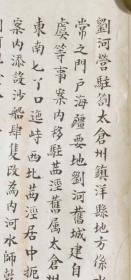 劉河營駐劄太倉州鎮洋縣地方係
常之門戶海疆要地劉河舊城建自
虞等事案内移駐茜涇舊屬太倉州
東南七丫口迤峙西北茜涇居中扼
案内添設沙船肆隻改為内河水師